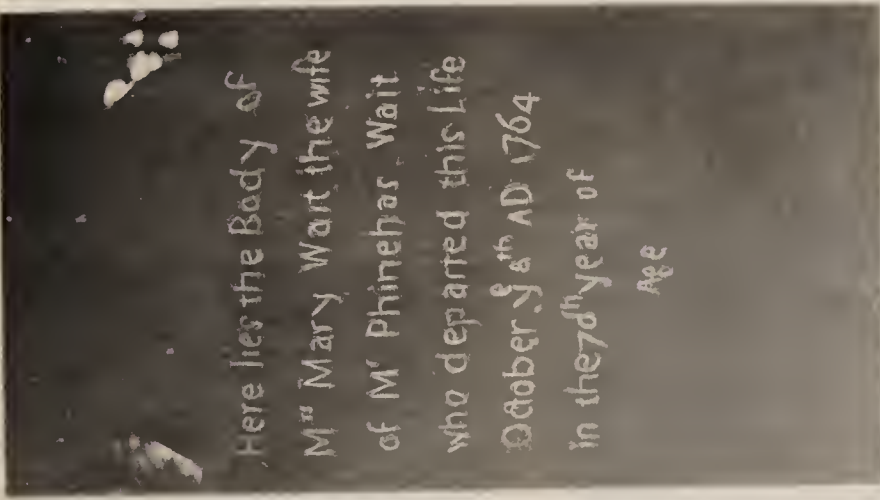 Here lies the Body of
Mrs Mary Wait the wife
of Mr Phinehas Wait
who departed this Life
October ye 8th AD 1764
in the 70th year of
Age